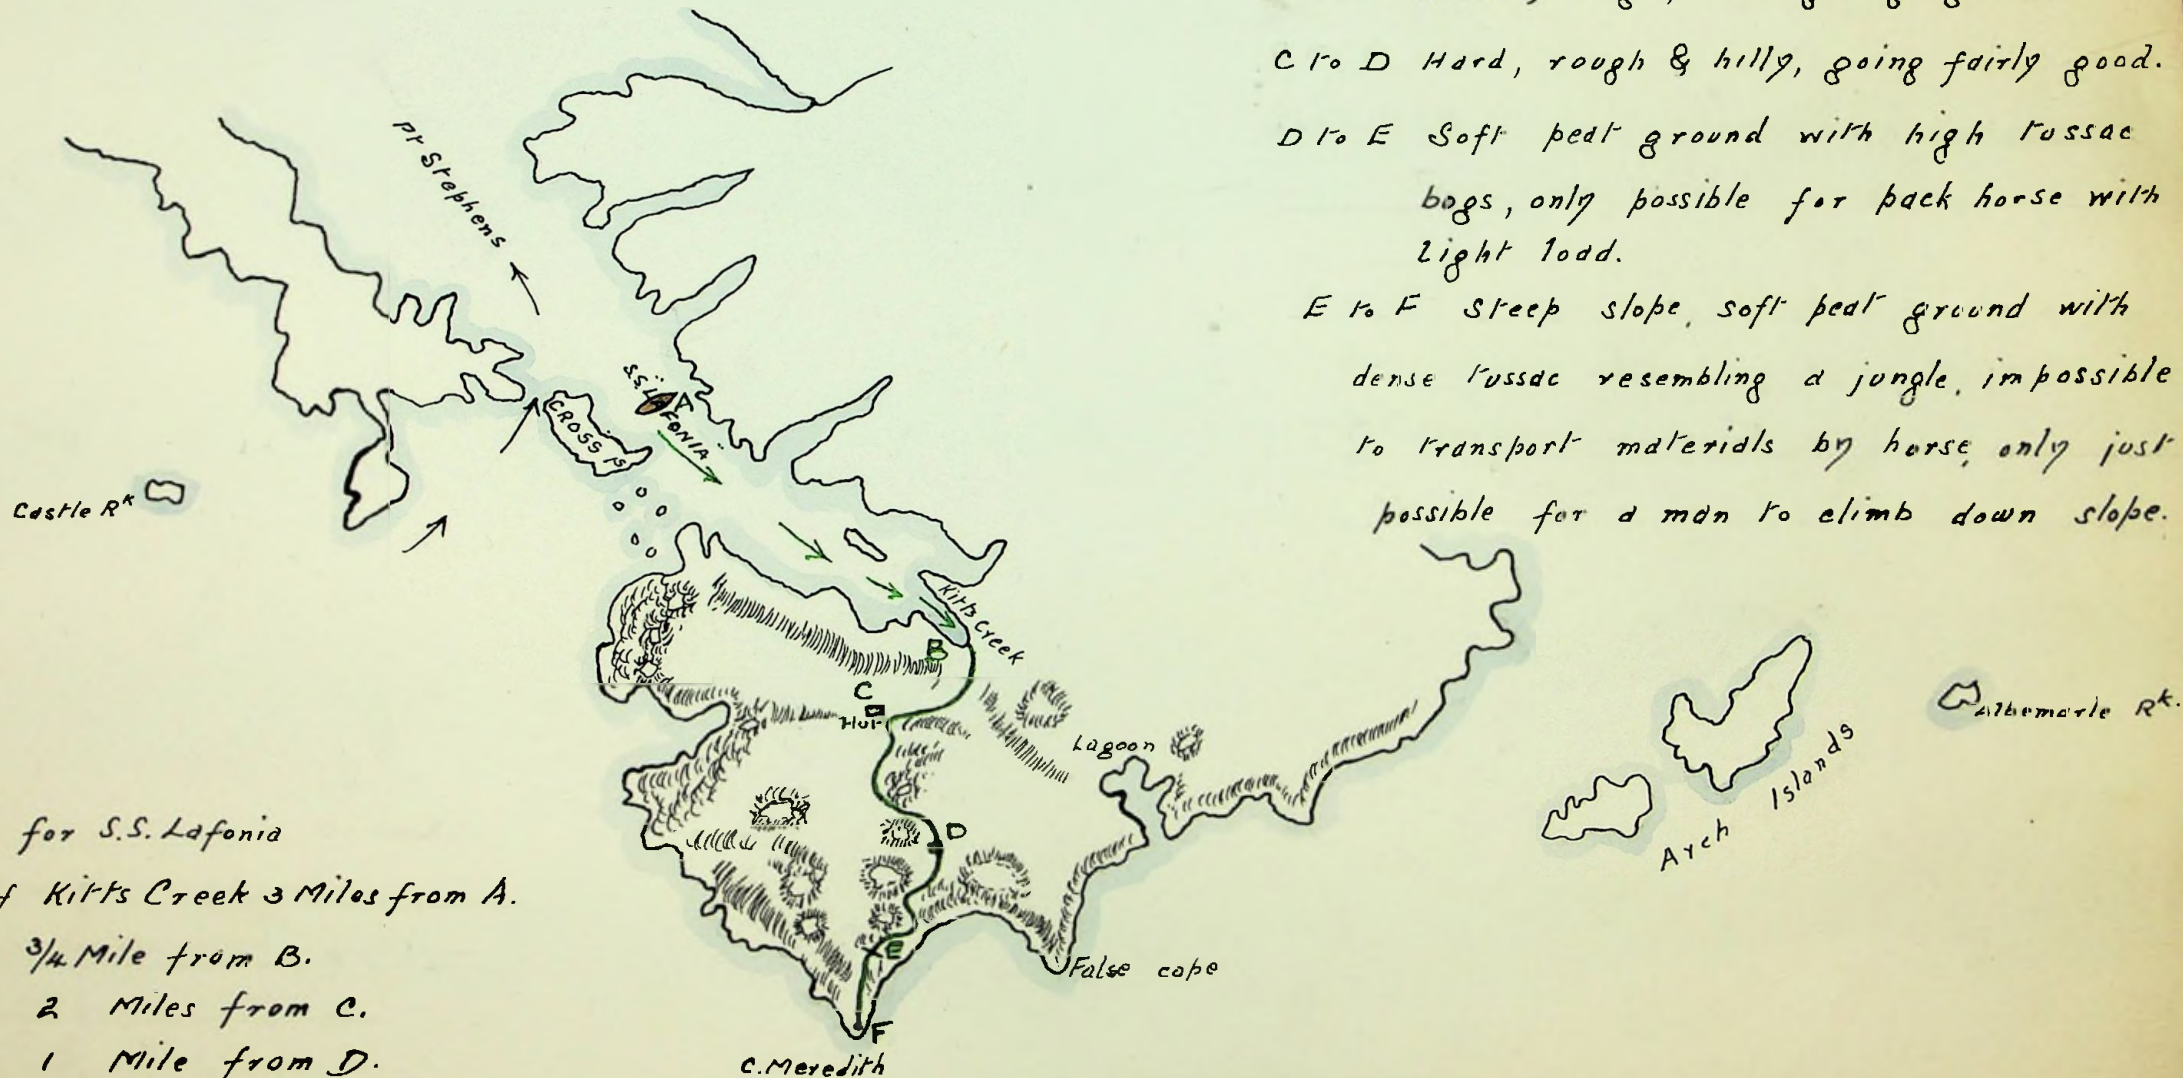 C to D Hard, rough & hilly, going fairly good.
D to E Soft peat ground with high tussac
bogs, only possible for pack horse with
light load.
E to F Steep slope, soft peat ground with
dense tussac resembling a jungle, impossible
to transport materials by horse, only just
possible for a man to climb down slope.
Pt Stephens
S.S. LAFONIA
A
CROSS IS
Castle Rk
Kitts Creek
B
C
Hut
Lagoon
Albemarle Rk.
Arch Islands
D
E
False cape
F
C. Meredith
for S.S. Lafonia
Kitts Creek 3 Miles from A.
3/4 Mile from B.
2 Miles from C.
1 Mile from D.